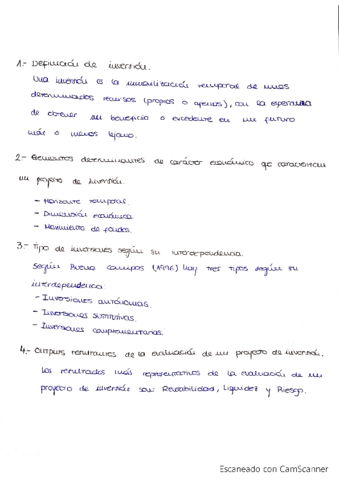 1.- Definición de inversión.
Una inversión es la inmovilización temporal de unos
determinados recursos (propios o ajenos), con la esperanza
de obtener un beneficio o excedente en un futuro
más o menos lejano.
2.- Elementos determinantes de carácter económico que caracterizan
un proyecto de inversión.
- Horizonte temporal.
- Dimensión económica
- Movimiento de fondos.
3.- Tipo de inversiones según su interdependencia.
Según Bueno Campos hay tres tipos según su
interdependencia
- Inversiones autónomas.
- Inversiones sustitutivas.
- Inversiones complementarias.
4.- Outputs resultantes de la evaluación de un proyecto de inversión.
Los resultados más representativos de la evaluación de un
proyecto de inversión son Rentabilidad, Liquidez y Riesgo.
Escaneado con CamScanner